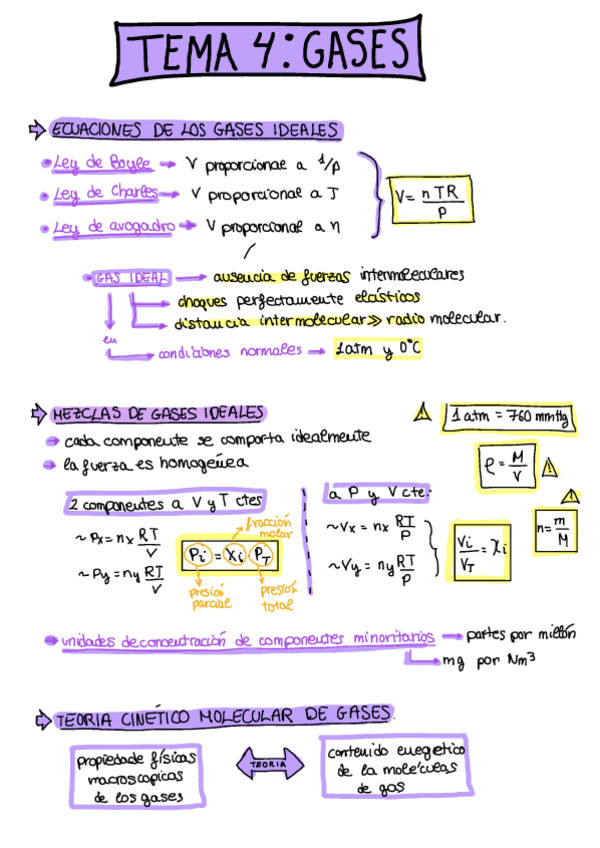 TEMA 4: GASES
ECUACIONES DE LOS GASES IDEALES
Ley de Boyle → V proporcional a 1/p
Ley de Charles → V proporcional a T
Ley de avogadro → V proporcional a n
V = nTR/P
GAS IDEAL → ausencia de fuerzas intermoleculares
choques perfectamente elásticos
distancia intermolecular >> radio molecular.
en
condiciones normales → 1atm y 0°C
MEZCLAS DE GASES IDEALES
1 atm = 760 mmHg
cada componente se comporta idealmente
la fuerza es homogénea
ρ = M/V
2 componentes a V y T ctes
a P y V cte:
n = m/M
~ Px = nx RT/V
fracción molar
Pi = Xi PT
~ Py = ny RT/V
presión parcial
presión total
~ Vx = nx RT/P
~ Vy = ny RT/P
Vi/VT = Xi
unidades de concentración de componentes minoritarios → partes por millón
mg por Nm³
TEORIA CINÉTICO MOLECULAR DE GASES.
propiedade físicas
macroscopicas
de los gases
TEORIA
contenido energetico
de la moleculas
de gas